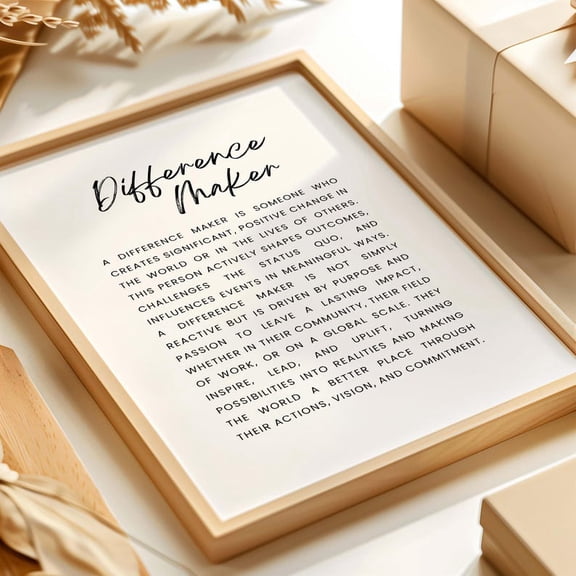 Difference
Maker
A DIFFERENCE MAKER IS SOMEONE WHO
CREATES SIGNIFICANT, POSITIVE CHANGE IN
THE WORLD OR IN THE LIVES OF OTHERS.
THIS PERSON ACTIVELY SHAPES OUTCOMES,
CHALLENGES THE STATUS QUO, AND
INFLUENCES EVENTS IN MEANINGFUL WAYS.
A DIFFERENCE MAKER IS NOT SIMPLY
REACTIVE BUT IS DRIVEN BY PURPOSE AND
PASSION TO LEAVE A LASTING IMPACT,
WHETHER IN THEIR COMMUNITY, THEIR FIELD
OF WORK, OR ON A GLOBAL SCALE. THEY
INSPIRE, LEAD, AND UPLIFT, TURNING
POSSIBILITIES INTO REALITIES AND MAKING
THE WORLD A BETTER PLACE THROUGH
THEIR ACTIONS, VISION, AND COMMITMENT.